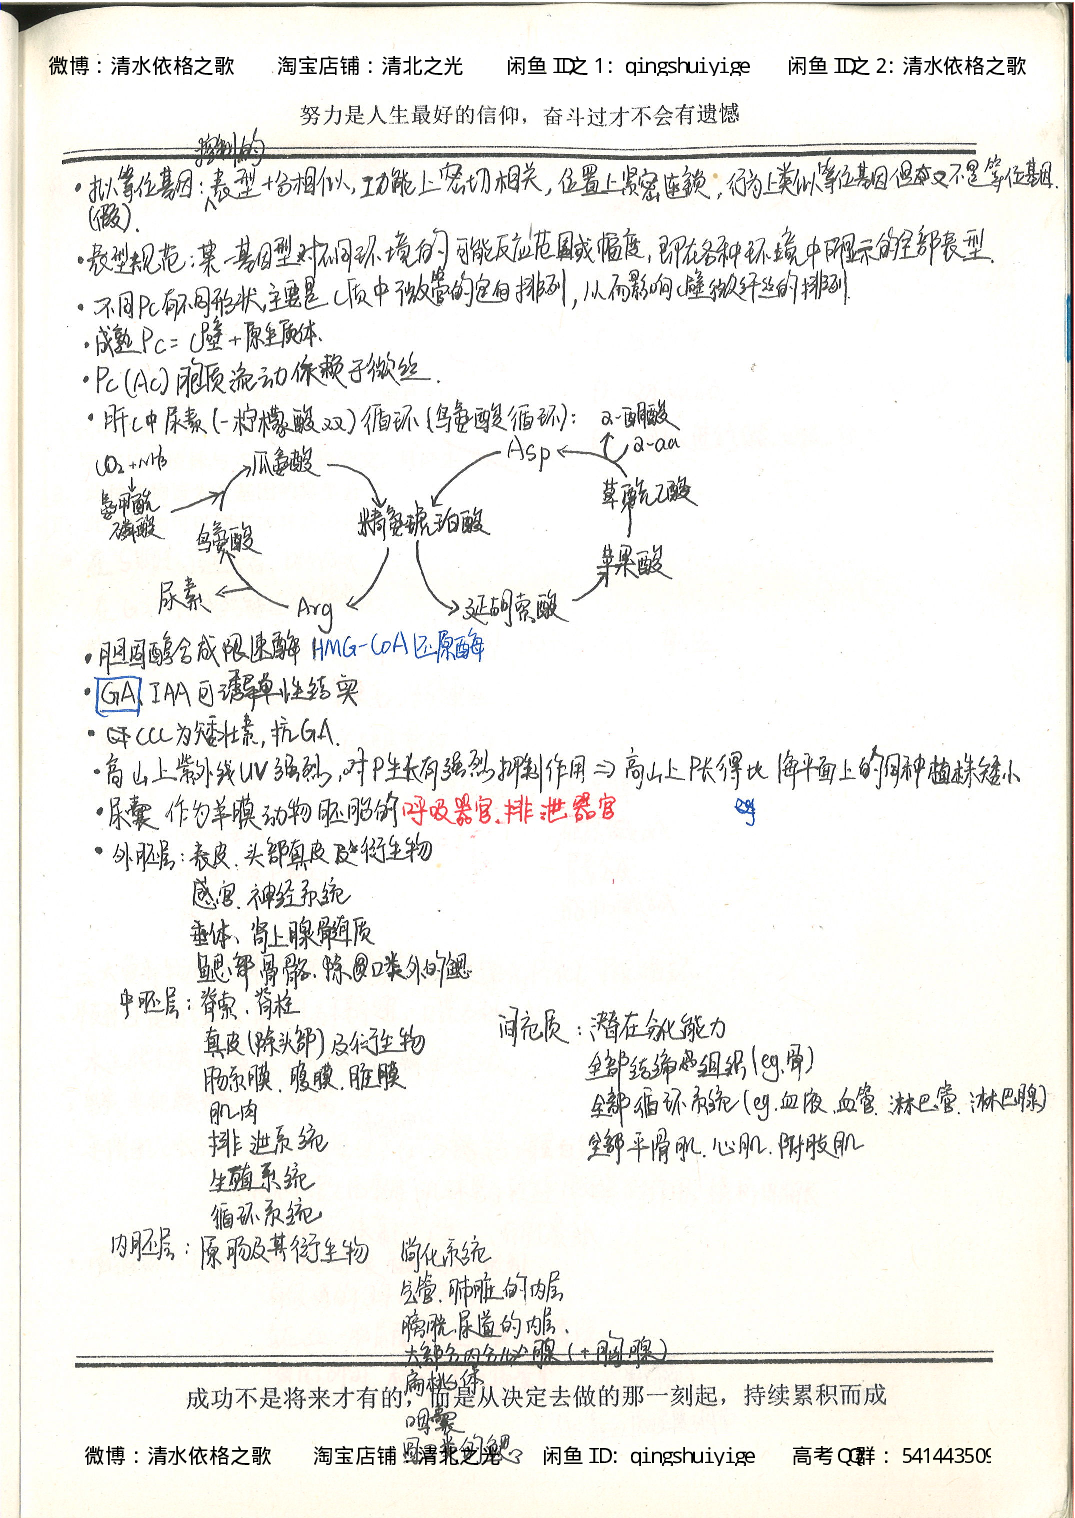 微博：清水依格之歌 淘宝店铺：清北之光 闲鱼 ID之 1： qingshuiyige 闲鱼 ID之 2：清水依格之歌
努力是人生最好的信仰，奋斗过才不会有遗憾
控制的
·拟等位基因：表型十分相似，功能上密切相关，位置上紧密连锁，行为上类似等位基因但本义不是等位基因.
(假).
·表型规范：某一基因型对不同环境的可能反应范围或幅度，即在各种环境中所显示的全部表型.
·不同Pc有不同形状,主要是c质中微管的定向排列，从而影响c壁微纤丝的排列.
·成熟Pc=c壁+原生质体.
·Pc(Ac)胞质流动依赖于微丝.
·肝c中尿素(-柠檬酸双)循环(鸟氨酸循环)： α-酮酸
α-aa
CO2+NH3
瓜氨酸
Asp
氨甲酰
磷酸
草酰乙酸
鸟氨酸
精氨琥珀酸
苹果酸
尿素
Arg
延胡索酸
·胆固醇合成限速酶 HMG-CoA还原酶
·GA、IAA可诱导单性结实
·CCC为矮壮素,抗GA.
·高山上紫外线UV强烈,对P生长有强烈抑制作用⇒高山上P长得比海平面上的同种植株矮小
·尿囊 作为羊膜动物胚胎的呼吸器官.排泄器官
eg
·外胚层：表皮.头部真皮及衍生物
感官.神经系统
垂体、肾上腺髓质
鳃部骨骼.除圆口类外的鳃
中胚层：脊索.脊柱
真皮(除头部)及衍生物
肠系膜.腹膜.脏膜
肌肉
排泄系统
生殖系统
循环系统
间充质：潜在分化能力
全部结缔组织(eg.骨)
全部循环系统(eg.血液.血管.淋巴管.淋巴腺)
全部平滑肌.心肌.附肢肌
内胚层：原肠及其衍生物 消化系统
气管.肺脏的内层
膀胱.尿道的内层.
大部分内分泌腺(+胸腺)
扁桃体
成功不是将来才有的，而是从决定去做的那一刻起，持续累积而成
咽囊
圆口类的鳃
微博：清水依格之歌 淘宝店铺：清北之光 闲鱼 ID: qingshuiyige 高考QQ群： 541443509